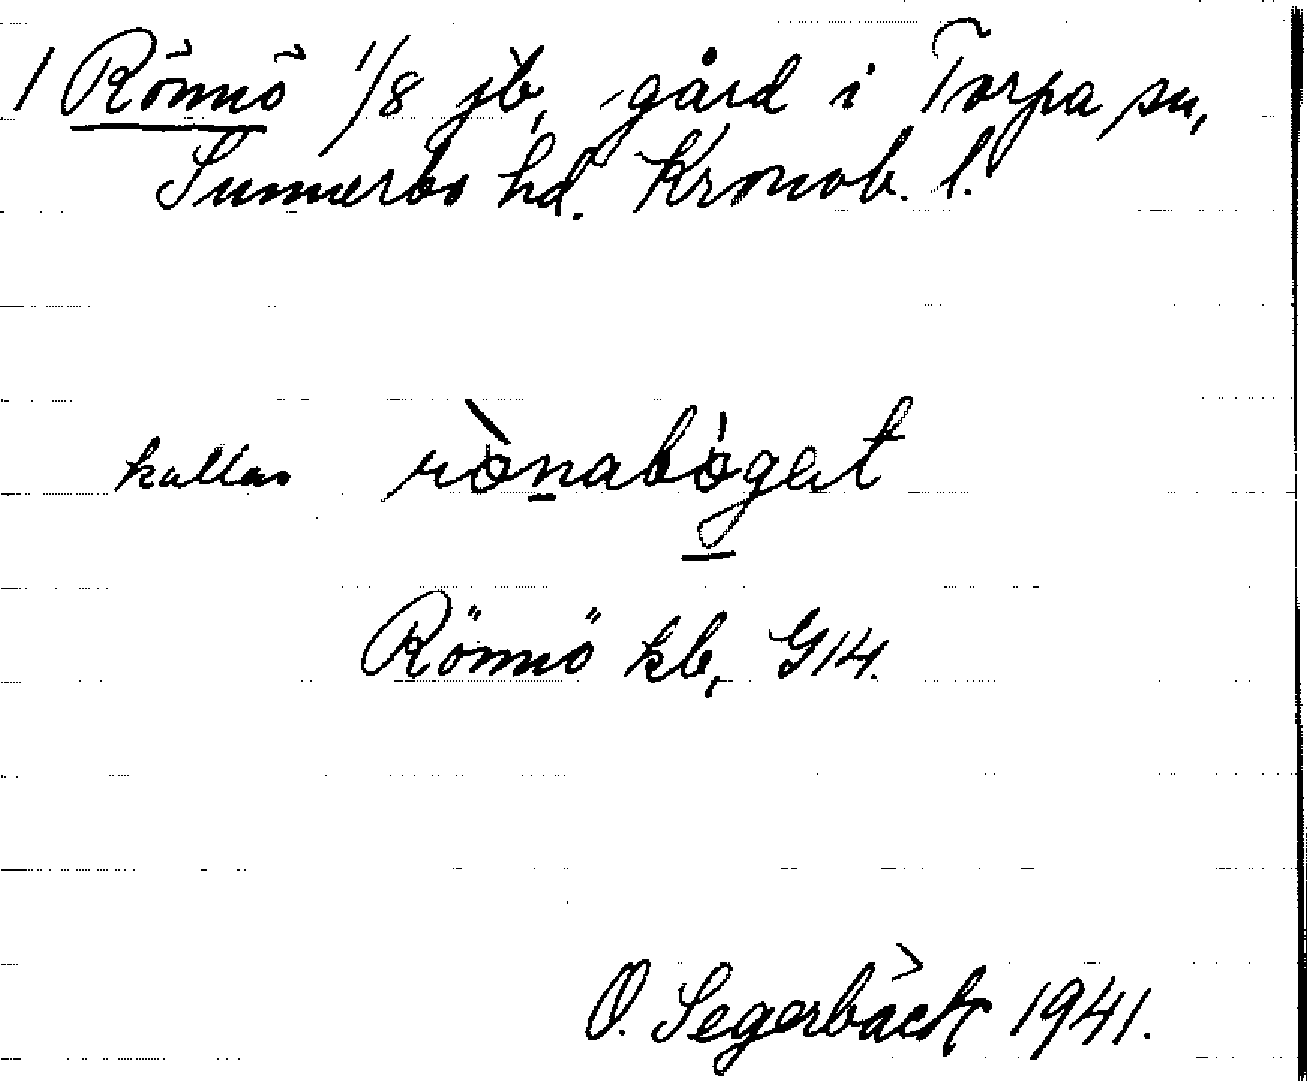 1 Rönnö 1/8 jb, gård i Torpa sn,
Sunnerbo hd. Kronob. l.
kallas rönaböget
Rönnö kb, G14.
O. Segerbäck 1941.